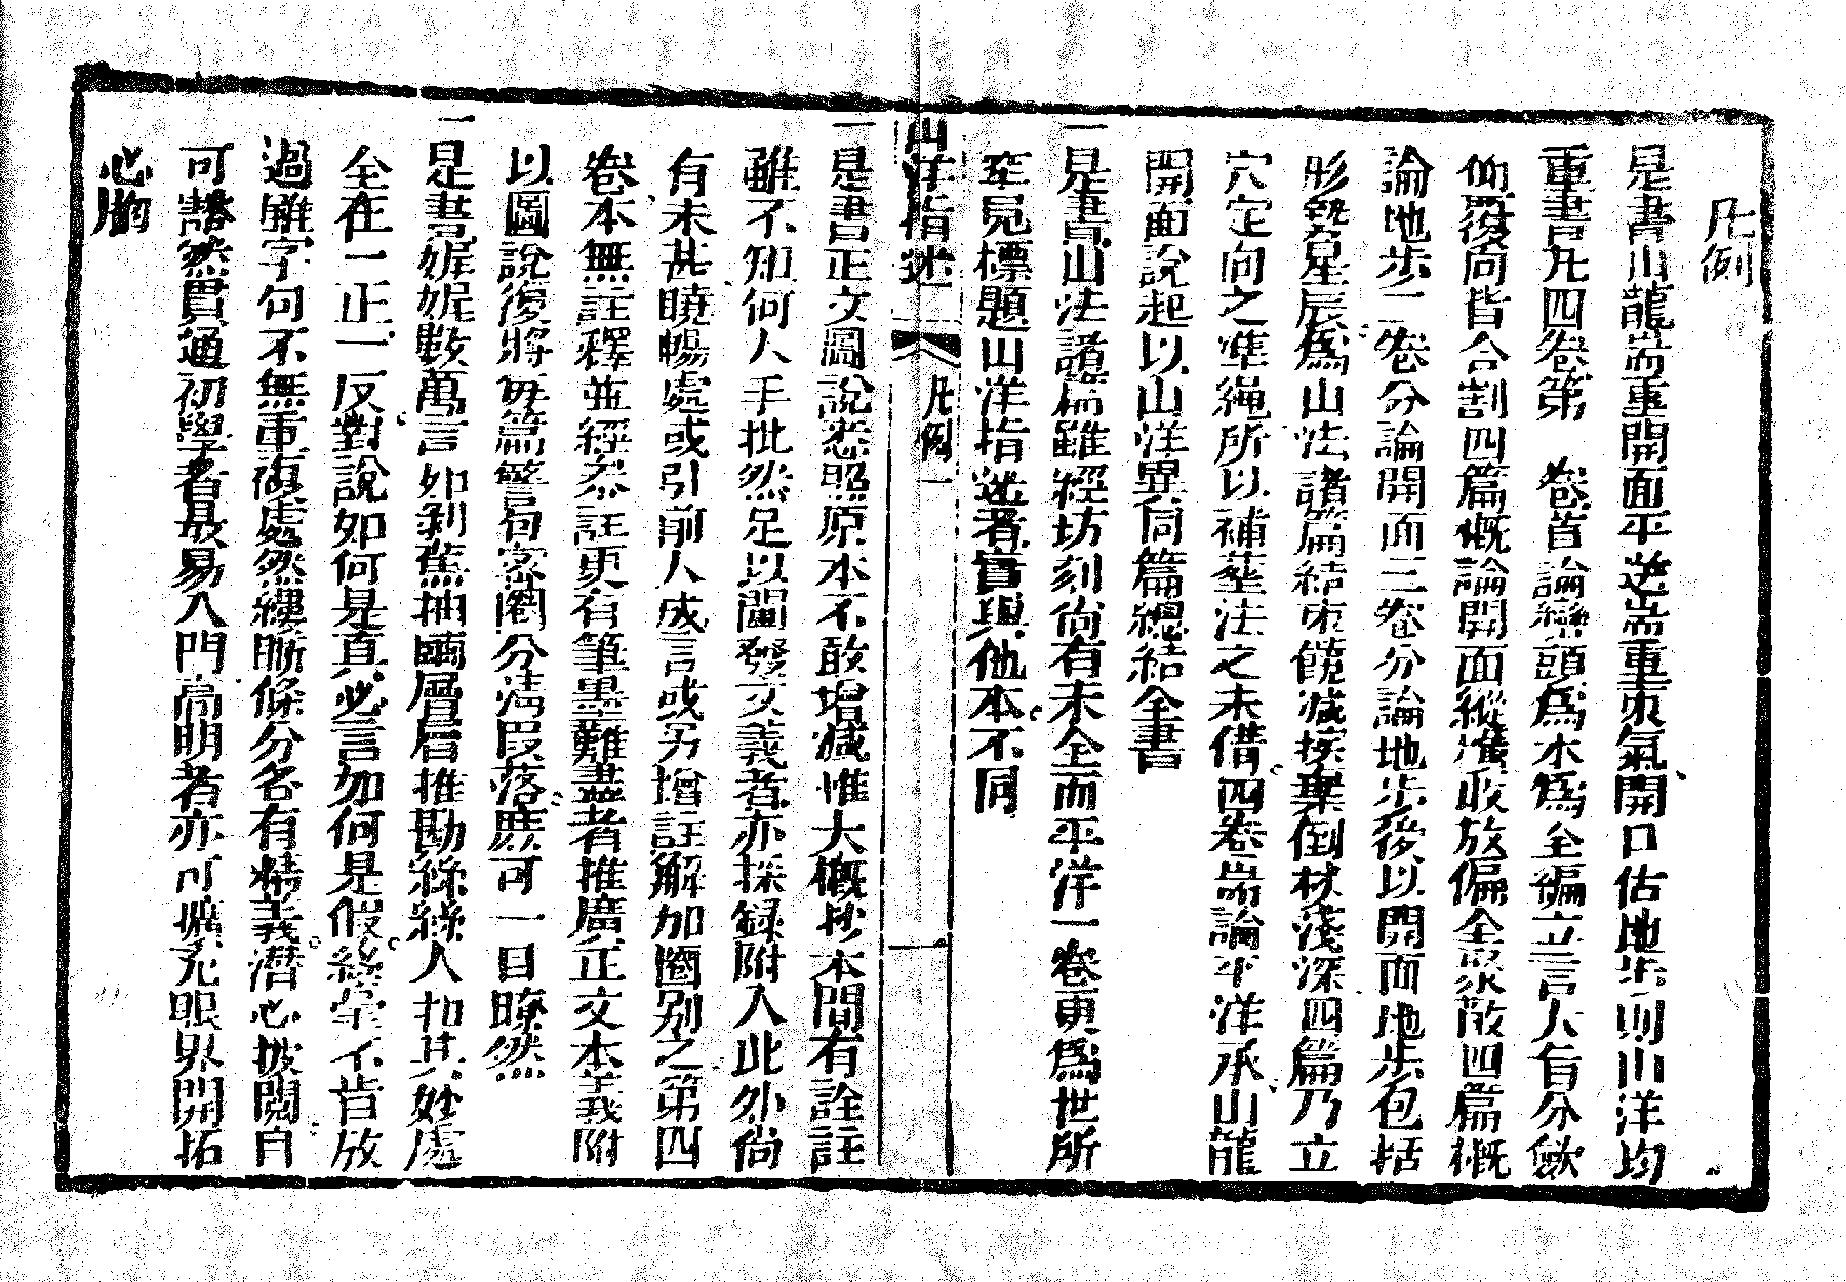 凡例
是書山龍耑重開面平洋耑重束氣開口佔地步則山洋均
重書凡四卷第 卷首論巒頭爲本爲全編立言人有分歛
仰覆向背合割四篇槪論開面縱橫收放偏全聚散四篇槪
論地步二卷分論開面三卷分論地步後以開面地步包括
形勢星辰爲山法諸篇結束饒減挨棄倒杖淺深四篇乃立
穴定向之準繩所以補塟法之未備四卷耑論平洋承山龍
開面說起以山洋異同篇總結全書
一是書山法諸篇雖經坊刻尙有未全而平洋一卷更爲世所
罕見標題山洋指迷者實與他本不同
山洋指迷 凡例 一
一是書正文圖說悉照原本不敢增減惟大槪抄本間有詮註
雖不知何人手批然足以闡發文義者亦採録附入此外尙
有未甚曉暢處或引前人成言或另增註解加圈别之第四
卷本無註釋並經叅註更有筆墨難盡者推廣正文本義附
以圖說復將每篇警句密圈分淸段落庶可一目瞭然
一是書娓娓數萬言如剥蕉抽繭層層推勘絲絲入扣其妙處
全在一正一反對說如何是眞必言如何是假絲毫不肯放
過雖字句不無重複處然縷晰條分各有精義潛心披閲自
可豁然貫通初學者最易入門高明者亦可擴充眼界開拓
心胸